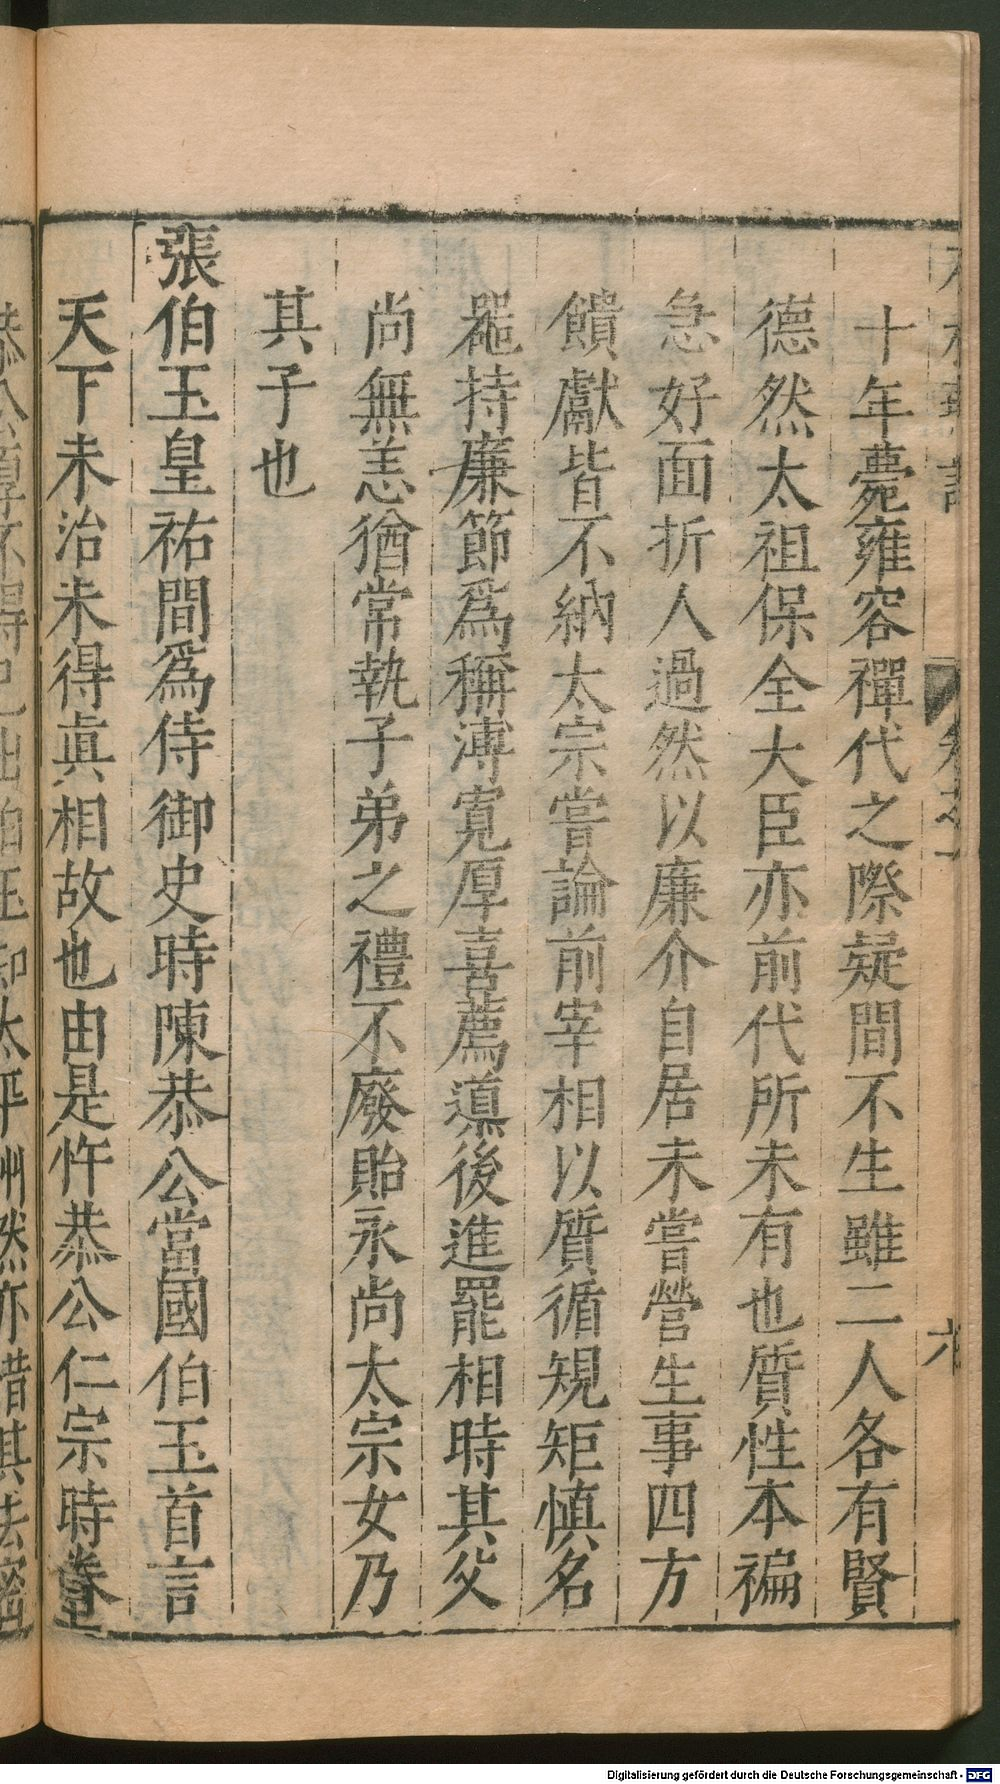 十年薨雍容禪代之際疑間不生雖二人各有賢
德然太祖保全大臣亦前代所未有也質性本褊
急好面折人過然以廉介自居未嘗營生事四方
饋獻皆不納太宗嘗論前宰相以質循規矩慎名
器持廉節爲稱溥寬厚喜薦導後進罷相時其父
尚無恙猶常執子弟之禮不廢貽永尚太宗女乃
其子也
張伯玉皇祐間爲侍御史時陳恭公當國伯玉首言
天下未治未得眞相故也由是忤恭公仁宗時眷
Digitalisierung gefördert durch die Deutsche Forschungsgemeinschaft - DFG